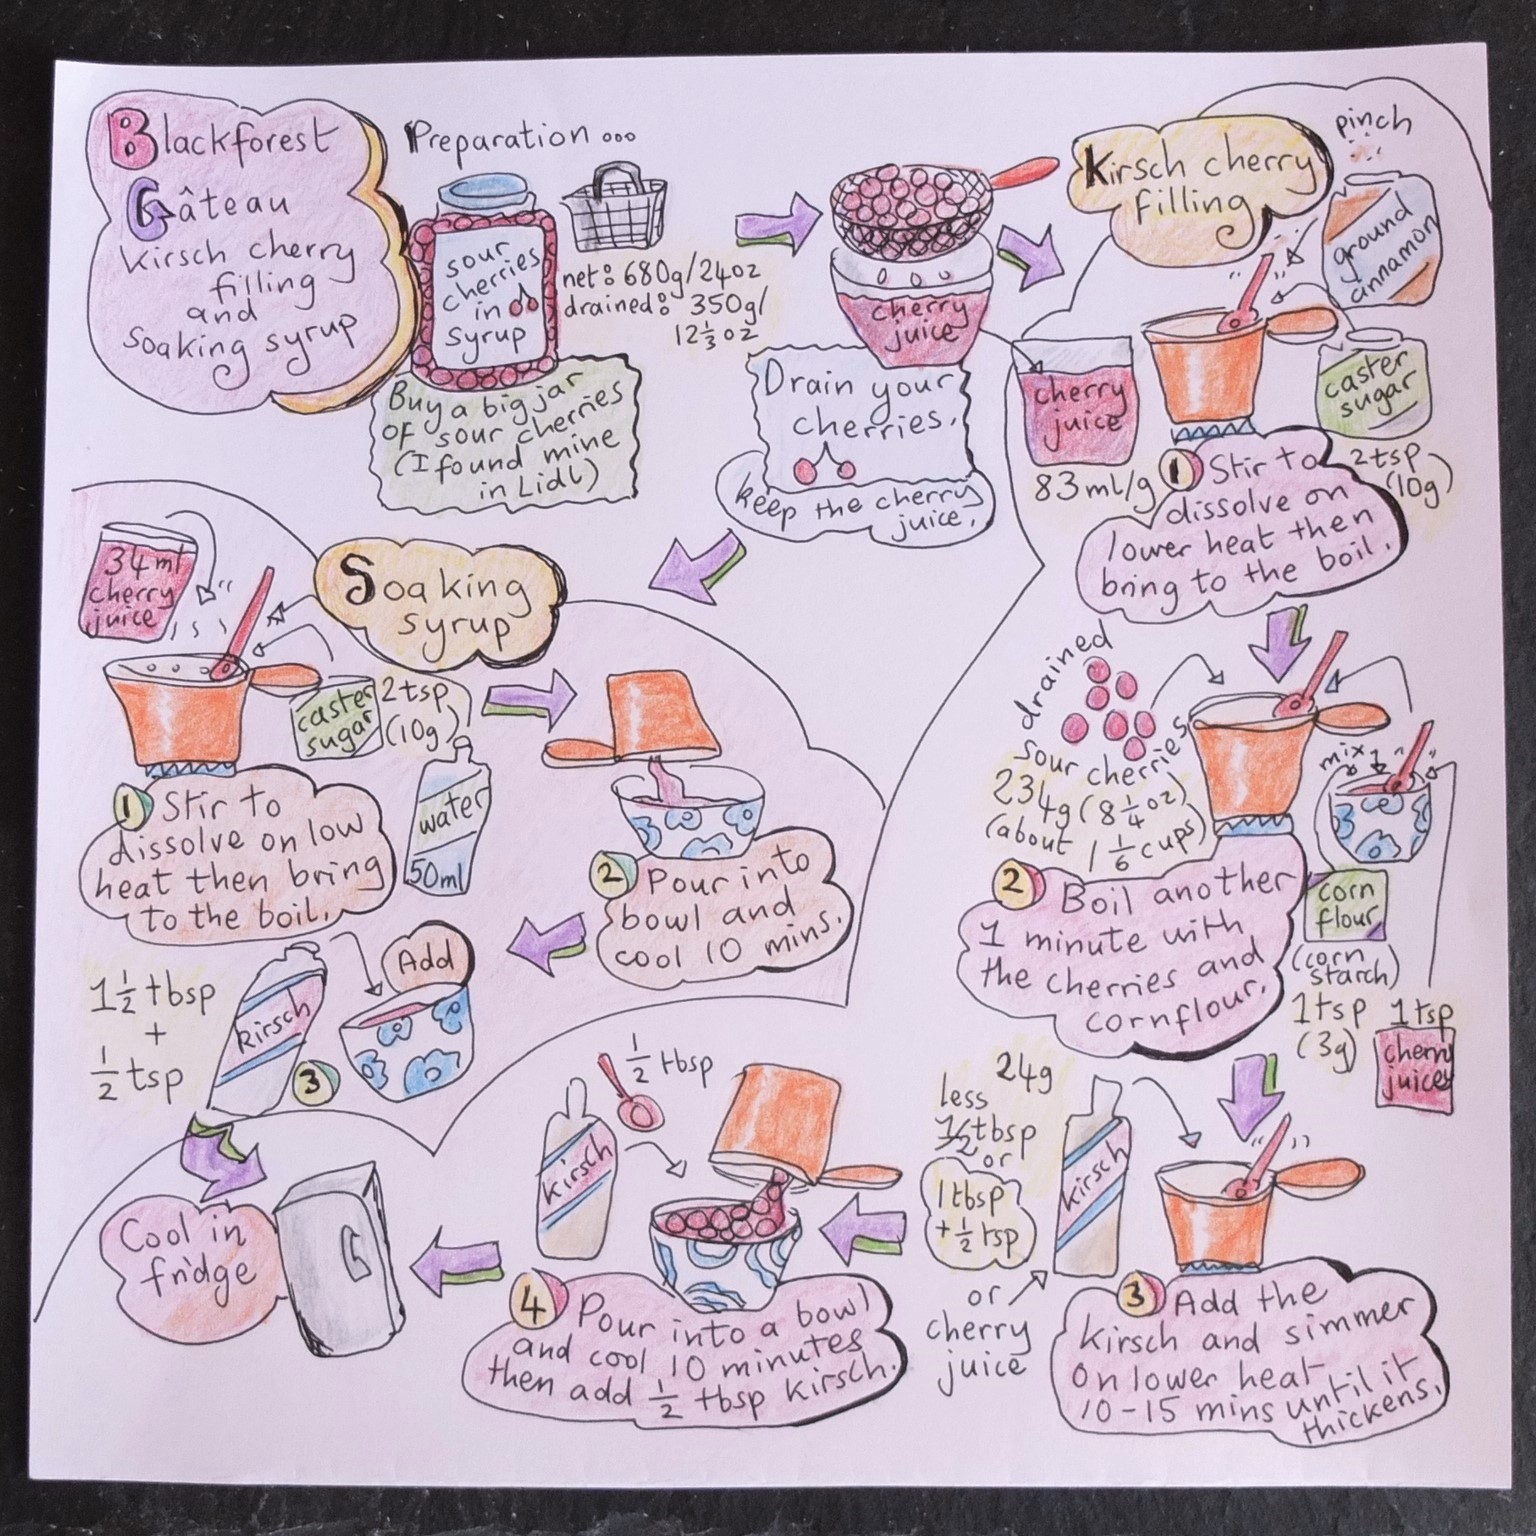 Blackforest
Gâteau
Kirsch cherry
filling
and
Soaking syrup
Preparation ...
sour
cherries
in
syrup
net: 680g/24oz
drained: 350g/
12 1/3 oz
Buy a big jar
of sour cherries
(I found mine
in Lidl)
cherry
juice
Drain your
cherries.
keep the cherry
juice.
Kirsch cherry
filling
pinch
ground
cinnamon
cherry
juice
83ml/g
caster
sugar
2tsp
(10g)
1 Stir to
dissolve on
lower heat then
bring to the boil.
drained
sour cherries
234g (8 1/4 oz)
(about 1 1/6 cups)
mix
corn
flour
(corn
starch)
1tsp
(3g)
1tsp
cherry
juice
2 Boil another
1 minute with
the cherries and
cornflour.
24g
less
1/2 tbsp
or
1tbsp
+ 1/2 tsp
or
cherry
juice
kirsch
3 Add the
kirsch and simmer
on lower heat
10-15 mins until it
thickens.
1/2 tbsp
kirsch
4 Pour into a bowl
and cool 10 minutes
then add 1/2 tbsp kirsch.
Cool in
fridge
Soaking
syrup
34ml
cherry
juice
caster
sugar
2tsp
(10g)
water
50ml
1 Stir to
dissolve on low
heat then bring
to the boil.
2 Pour into
bowl and
cool 10 mins.
Add
1 1/2 tbsp
+
1/2 tsp
kirsch
3